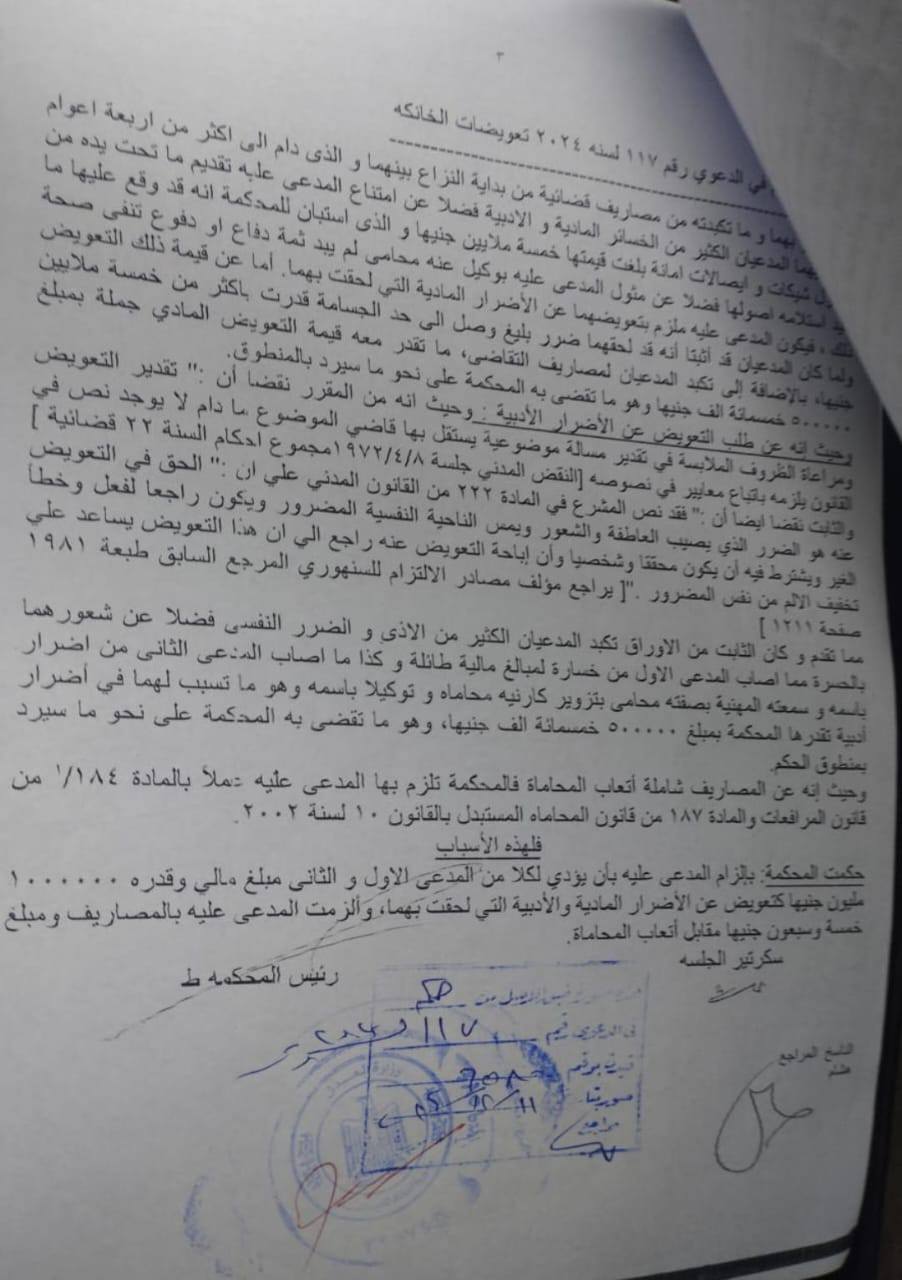 ٣
في الدعوي رقم ١١٧ لسنه ٢٠٢٤ تعويضات الخانكه
بهما و ما تكبدته من مصاريف قضائية من بداية النزاع بينهما و الذى دام الى اكثر من اربعة اعوام
المدعيان الكثير من الخسائر المادية و الادبية فضلا عن امتناع المدعى عليه تقديم ما تحت يده من
شيكات و ايصالات امانة بلغت قيمتها خمسة ملايين جنيها و الذى استبان للمحكمة انه قد وقع عليها ما
استلامه اصولها فضلا عن مثول المدعى عليه بوكيل عنه محامى لم يبد ثمة دفاع او دفوع تنفى صحة
ذلك ، فيكون المدعى عليه ملزم بتعويضهما عن الأضرار المادية التي لحقت بهما. أما عن قيمة ذلك التعويض
ولما كان المدعيان قد أثبتا أنه قد لحقهما ضرر بليغ وصل الى حد الجسامة قدرت باكثر من خمسة ملايين
جنيها، بالإضافة إلى تكبد المدعيان لمصاريف التقاضى، ما تقدر معه قيمة التعويض المادي جملة بمبلغ
٥٠٠٠٠٠ خمسمائة الف جنيها وهو ما تقضى به المحكمة على نحو ما سيرد بالمنطوق.
وحيث إنه عن طلب التعويض عن الأضرار الأدبية : وحيث انه من المقرر نقضا أن :" تقدير التعويض
ومراعاة الظروف الملابسة في تقدير مسالة موضوعية يستقل بها قاضي الموضوع ما دام لا يوجد نص في
القانون يلزمه باتباع معايير في نصوصه [النقض المدني جلسة ١٩٧٢/٤/٨مجموع احكام السنة ٢٢ قضائية ]
والثابت نقضا ايضا أن :" فقد نص المشرع في المادة ٢٢٢ من القانون المدني علي ان :" الحق في التعويض
عنه هو الضرر الذي يصيب العاطفة والشعور ويمس الناحية النفسية المضرور ويكون راجعا لفعل وخطأ
الغير ويشترط فيه أن يكون محققا وشخصيا وأن إباحة التعويض عنه راجع الي ان هذا التعويض يساعد علي
تخفيف الالم من نفس المضرور ."[ يراجع مؤلف مصادر الالتزام للسنهوري المرجع السابق طبعة ١٩٨١
صفحة ١٢١١ ]
مما تقدم و كان الثابت من الاوراق تكبد المدعيان الكثير من الاذى و الضرر النفسى فضلا عن شعورهما
بالحسرة مما اصاب المدعى الاول من خسارة لمبالغ مالية طائلة و كذا ما اصاب المدعى الثانى من اضرار
باسمه و سمعته المهنية بصفته محامى بتزوير كارنيه محاماه و توكيلا باسمه وهو ما تسبب لهما في أضرار
أدبية تقدرها المحكمة بمبلغ ٥٠٠٠٠٠ خمسمائة الف جنيها، وهو ما تقضى به المحكمة على نحو ما سيرد
بمنطوق الحكم.
وحيث إنه عن المصاريف شاملة أتعاب المحاماة فالمحكمة تلزم بها المدعى عليه عملاً بالمادة ١/١٨٤ من
قانون المرافعات والمادة ١٨٧ من قانون المحاماه المستبدل بالقانون ١٠ لسنة ٢٠٠٢.
فلهذه الأسباب
حكمت المحكمة: بإلزام المدعى عليه بأن يؤدي لكلا من المدعى الاول و الثانى مبلغ مالي وقدره ١٠٠٠٠٠٠
مليون جنيها كتعويض عن الأضرار المادية والأدبية التي لحقت بهما، وألزمت المدعى عليه بالمصاريف ومبلغ
خمسة وسبعون جنيها مقابل أتعاب المحاماة.
سكرتير الجلسه
رئيس المحكمه ط
حكم
فى الدعوى رقم ١١٧
وزارة العدل
الناسخ المراجع